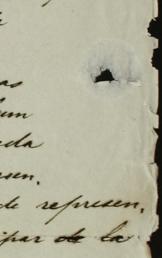 as
um
ada
sen.
de represen,
ipar de la